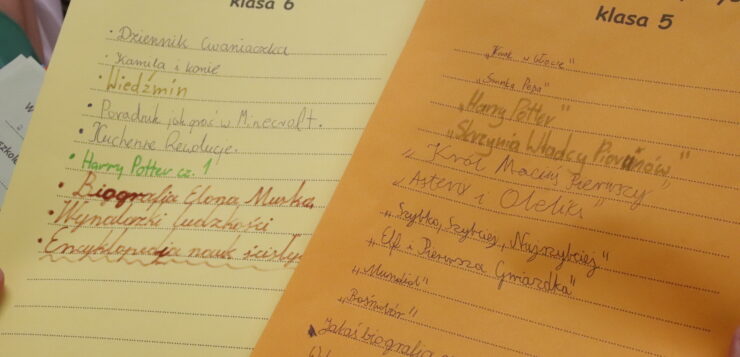 klasa 6
• Dziennik Cwaniaczka
• Kamila i konie
• Wiedźmin
• Poradnik jak grać w Minecraft.
• Kuchenne Rewolucje.
• Harry Potter cz. 1
• Biografia Elona Muska
• Wynalazki ludzkości
• Encyklopedia nauk ścisłych
klasa 5
„Kurk w
Pepa"
„Harry Potter"
„Skrzynia Władcy Piorunów"
„Król Maciuś Pierwszy"
„Asterix i Obeliks"
„Szybko, Szybciej, Najszybciej"
„Elf i Pierwsza Gwiazdka"
„Mundial"
Jakaś biografia